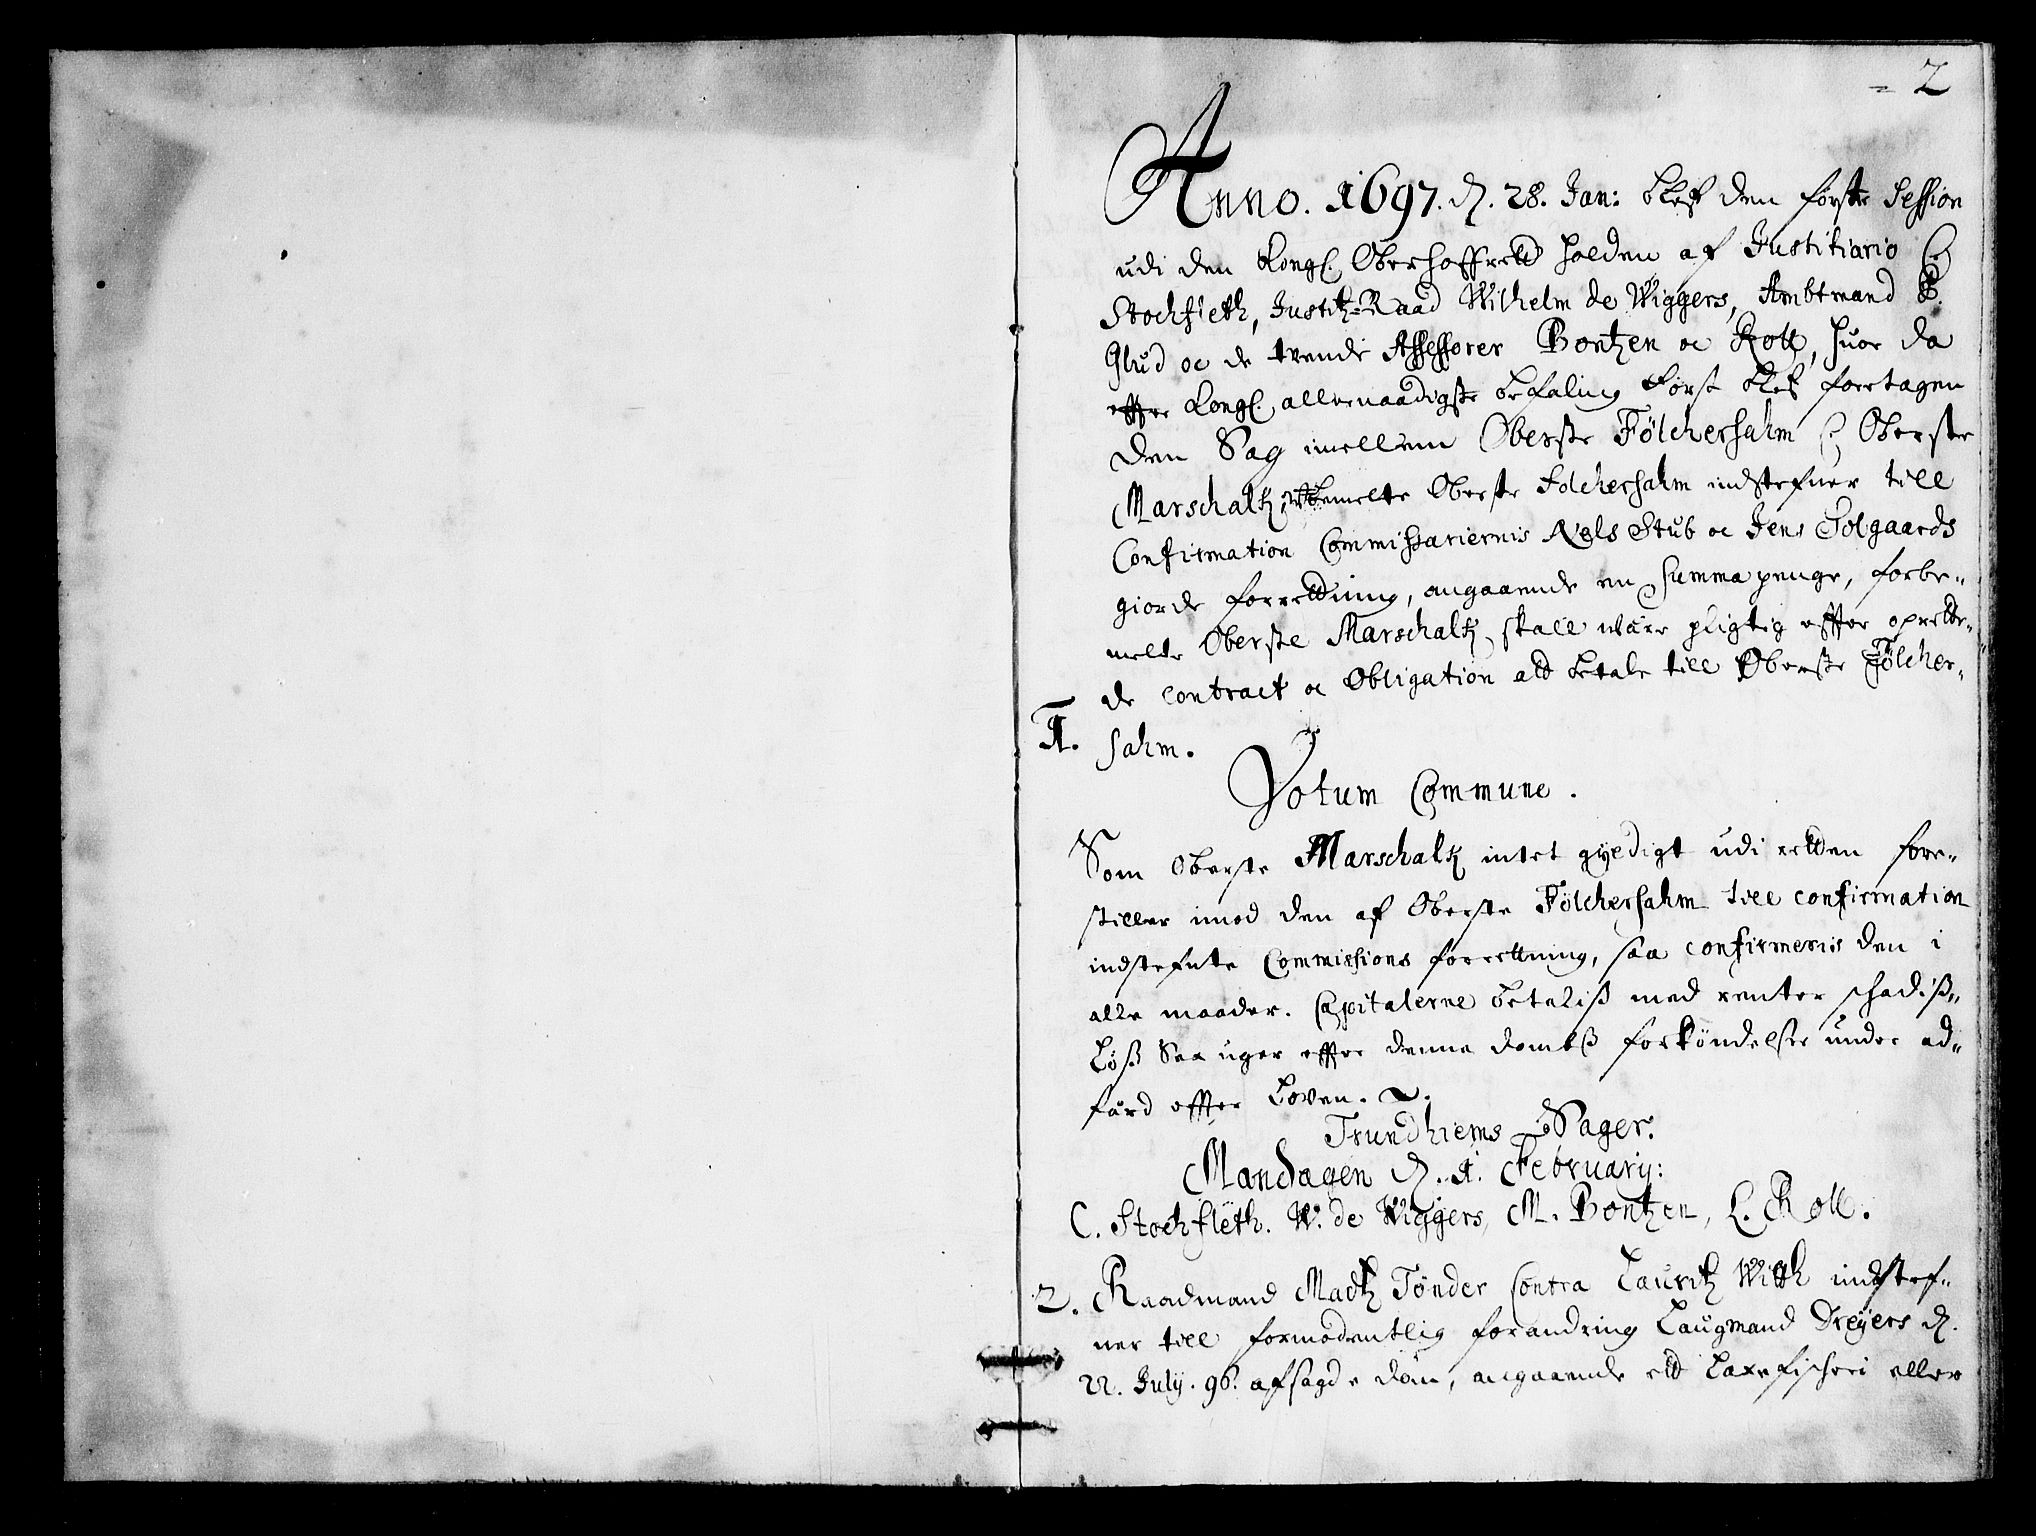 2
Anno. 1697. d. 28. Jan: blef den første Session
udi den Kongl. Oberhoffrett holden af Justitiario C
Stochfleth, Justitz-Raad Wilhelm de Wiggers, Ambtmand P.
Glud oc de tvende Assessorer Bontzen oc Roll, huor da
effter Kongl. allernaadigste befaling først blef foertagen
den Sag imellem Oberste Fölchersahm oc Oberste
Marschalk, bemelte Oberste Folchersahm indstefner till
Confirmation Commissariernis Nels Stub oc Jens Solgaards
giorde forrettning, angaaende en Summa penge, forbe-
melte Oberste Marschalk skall være pligtig effter oprette-
de contract oc Obligation att betale till Oberste Fölcher-
1. sahm.
Votum Commune.
Som Oberste Marschalk intet gyldigt udi retten fore-
stiller imod den af Oberste Fölchersahm till confirmation
indstefnte Commissions forrettning, saa confirmeris den i
alle maader. Capitalerne betaliß med renter schadiß-
löß Sex uger effter denne dombß forköndelse under ad-
färd effter Loven.
Trundhiems Sager.
Mandagen d. 1. February:
C. Stochfleth. W. de Wiggers, M. Bontzen, L. Roll.
2. Raadmand Madtz Tönder Contra Lauritz Witth indstef-
ner till formodentlig forandring Laugmand Dreyers d.
22. July. 96. afsagde dom, angaaende ett Laxefischeri eller